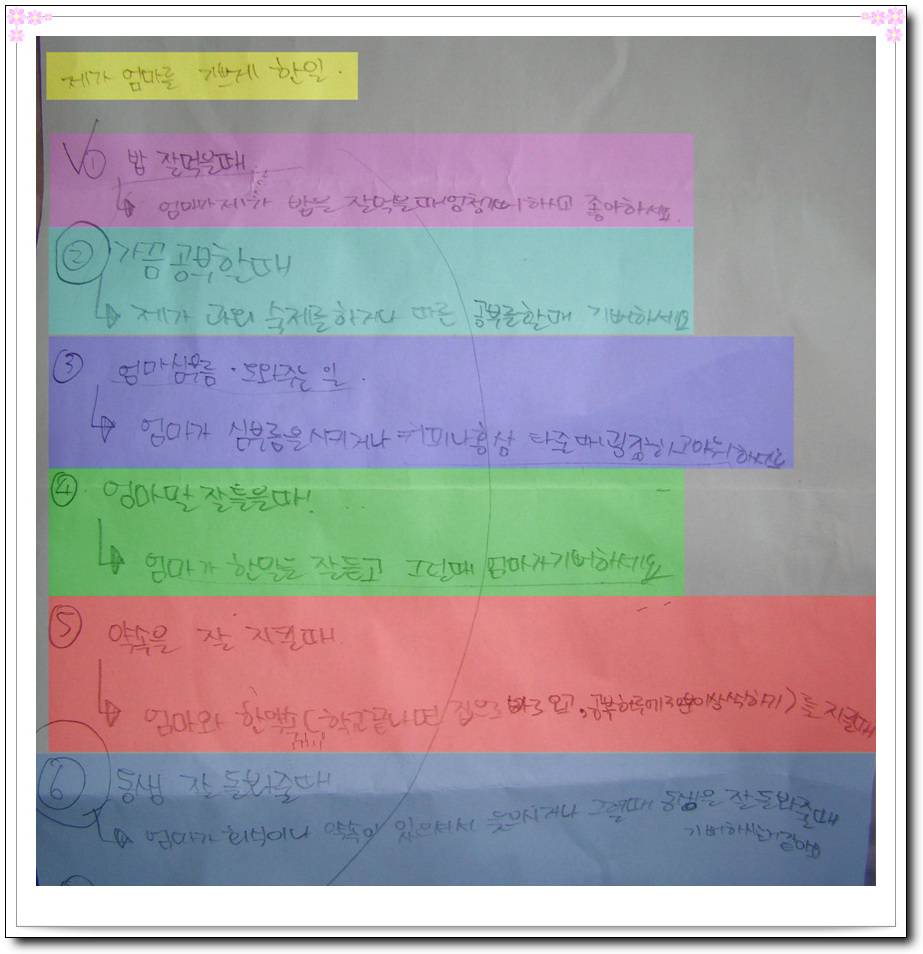 제가 엄마를 기쁘게 한일.
① 밥 잘먹을때.
엄마가 제가 밥을 잘먹을때 엄청 하시고 좋아하세요.
② 가끔 공부할때
제가 숙제를하거나 다른 공부를할때 기뻐하세요
③ 엄마심부름·도와주는 일.
엄마가 심부름을시키거나 커피나홍삼 타줄때굉장히고마워하세요
④ 엄마말 잘들을때!
엄마가 한말을 잘듣고 그런때 엄마가기뻐하세요
⑤ 약속을 잘 지킬때.
엄마와 한약속(학교끝나면 집으로 바로 오고, 공부하루에 이상씩하기)를 지킬때
⑥ 동생 잘 돌봐줄때
엄마가 회식이나 약속이 있으셔서 못오시거나 그럴때 동생을 잘돌봐줄때
기뻐하시는거같아요